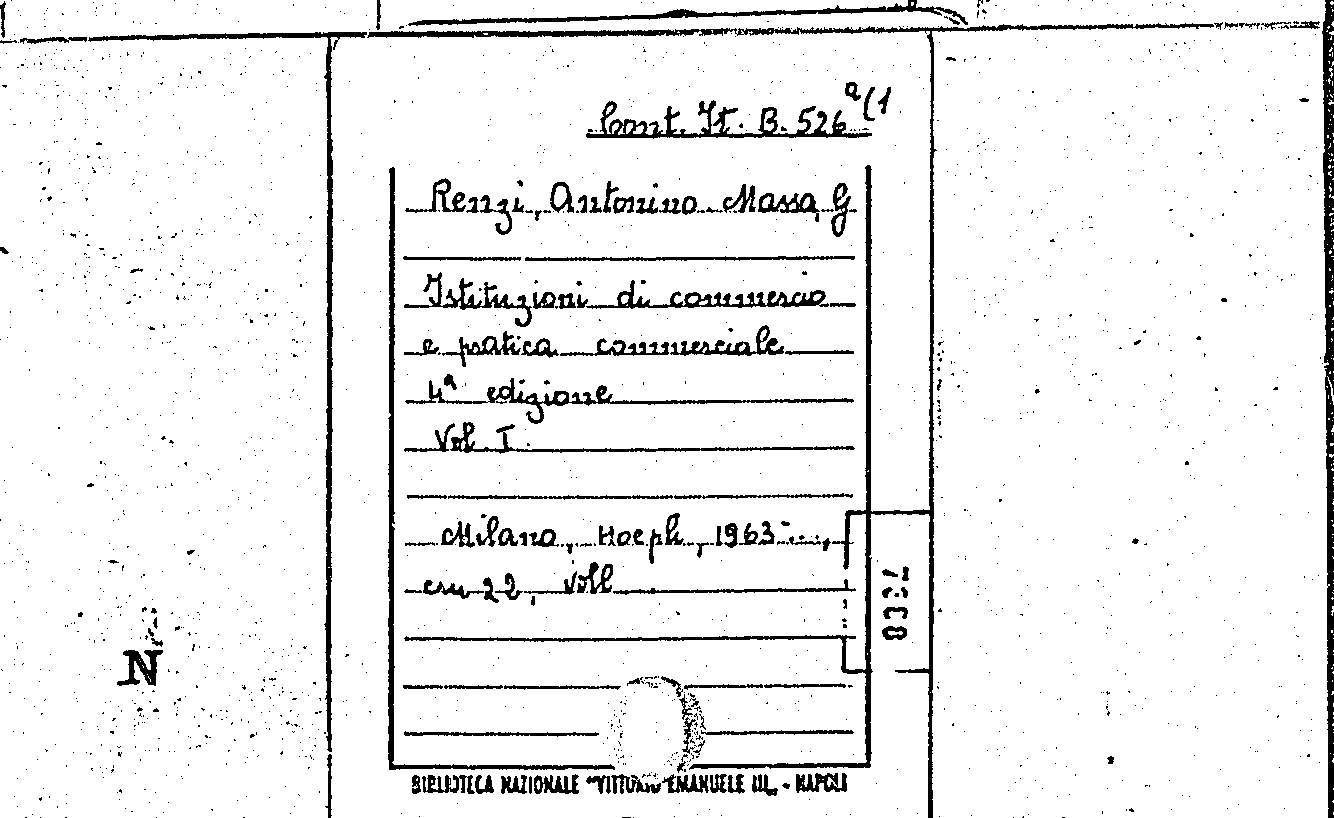 Cont. It. B. 526 a(1
Renzi, Antonino. Massa, G
Istituzioni di commercio
e pratica commerciale
4ª edizione
Vol. I.
Milano, Hoepli, 1963-...,
cm 22, voll
N
BIBLIOTECA NAZIONALE "VITTORIO EMANUELE III" - NAPOLI